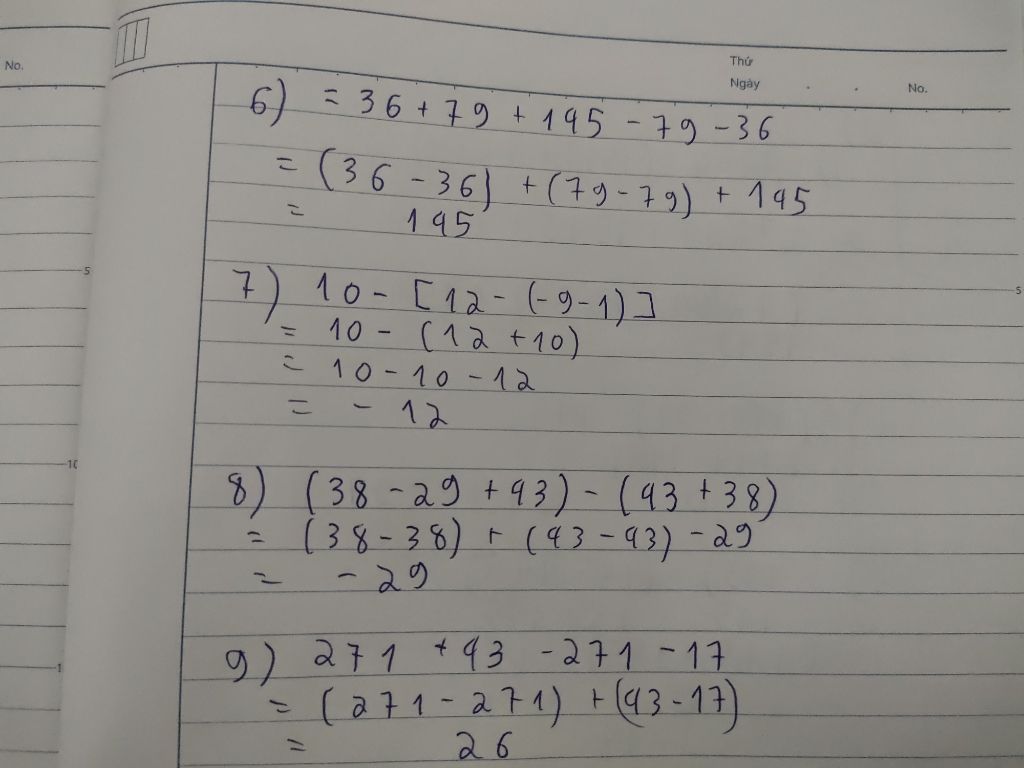 No.
Thứ
Ngày . . No.
6) = 36 + 79 + 145 - 79 - 36
= (36 - 36) + (79 - 79) + 145
= 145
5
7) 10 - [12 - (-9 - 1)]
5
= 10 - (12 + 10)
= 10 - 10 - 12
= - 12
10
8) (38 - 29 + 43) - (43 + 38)
= (38 - 38) + (43 - 43) - 29
= - 29
9) 271 + 43 - 271 - 17
= (271 - 271) + (43 - 17)
= 26